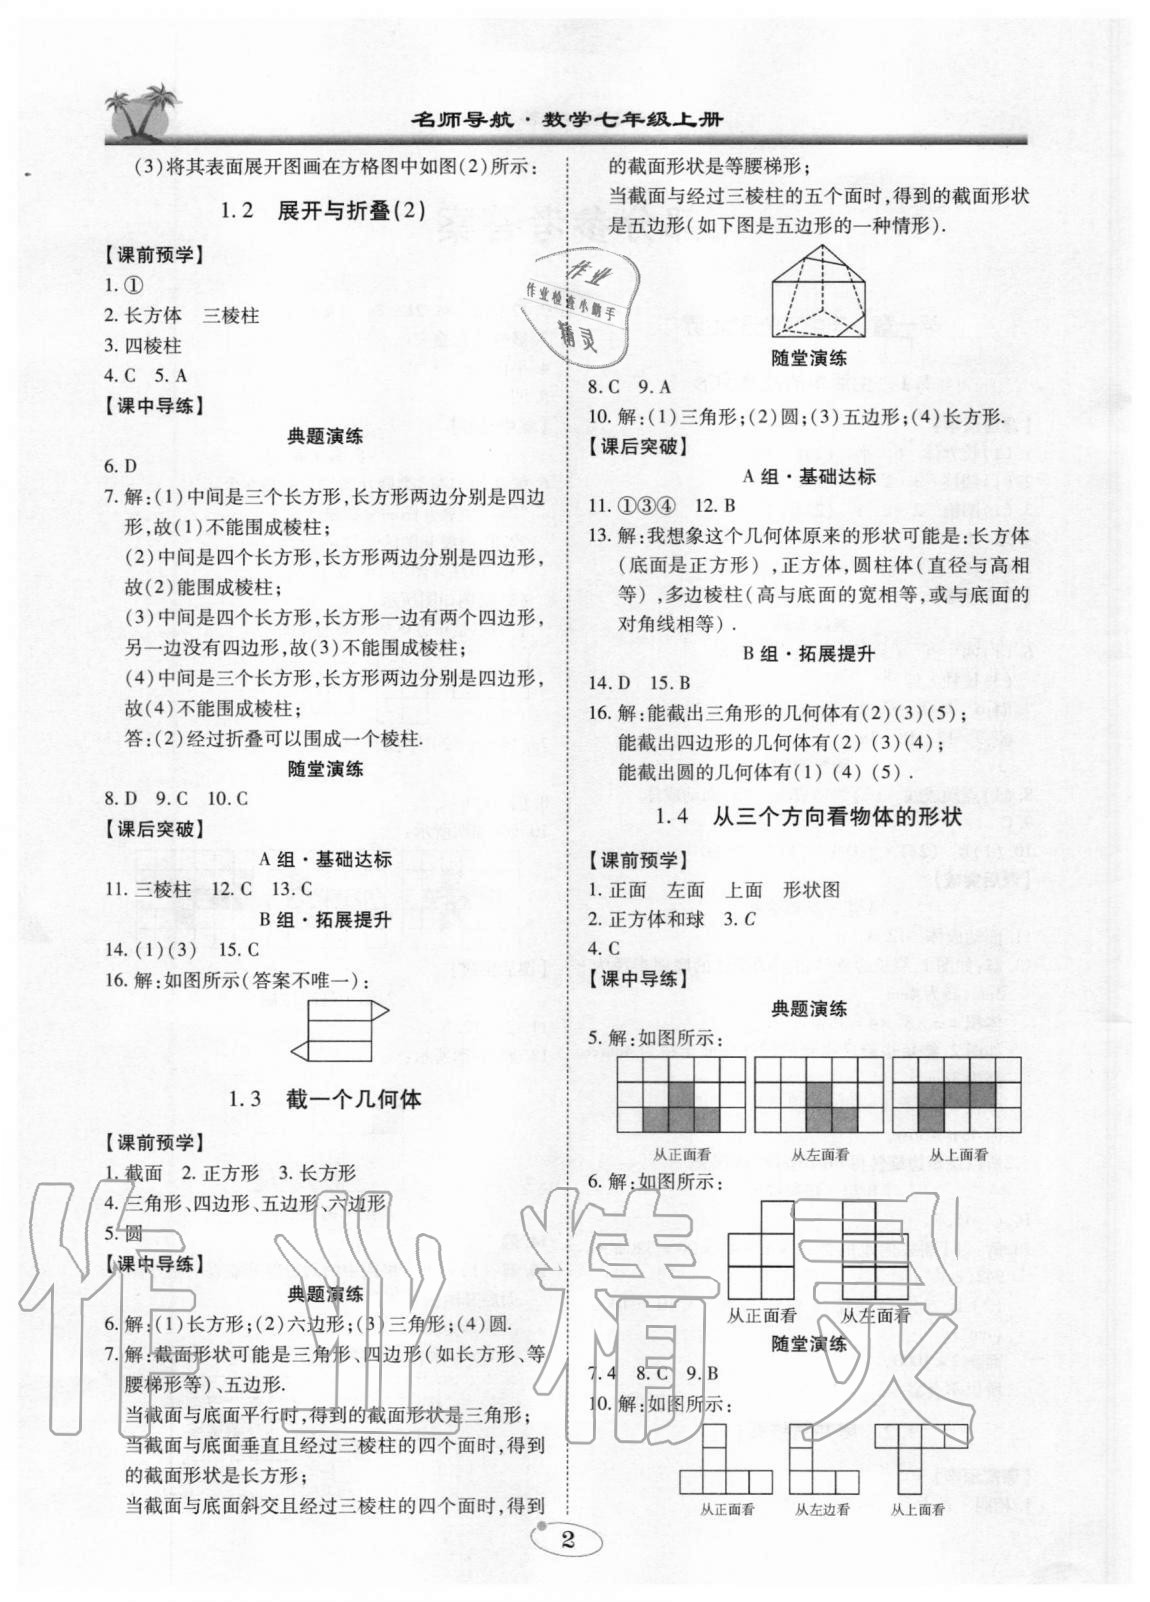 名师导航·数学七年级上册
(3)将其表面展开图画在方格图中如图(2)所示:
1.2 展开与折叠(2)
【课前预学】
1.①
2.长方体 三棱柱
3.四棱柱
4.C 5.A
【课中导练】
典题演练
6.D
7.解:(1)中间是三个长方形,长方形两边分别是四边
形,故(1)不能围成棱柱;
(2)中间是四个长方形,长方形两边分别是四边形,
故(2)能围成棱柱;
(3)中间是四个长方形,长方形一边有两个四边形,
另一边没有四边形,故(3)不能围成棱柱;
(4)中间是三个长方形,长方形两边分别是四边形,
故(4)不能围成棱柱;
答:(2)经过折叠可以围成一个棱柱.
随堂演练
8.D 9.C 10.C
【课后突破】
A组·基础达标
11.三棱柱 12.C 13.C
B组·拓展提升
14.(1)(3) 15.C
16.解:如图所示(答案不唯一):
1.3 截一个几何体
【课前预学】
1.截面 2.正方形 3.长方形
4.三角形、四边形、五边形、六边形
5.圆
【课中导练】
典题演练
6.解:(1)长方形;(2)六边形;(3)三角形;(4)圆.
7.解:截面形状可能是三角形、四边形(如长方形、等
腰梯形等)、五边形.
当截面与底面平行时,得到的截面形状是三角形;
当截面与底面垂直且经过三棱柱的四个面时,得到
的截面形状是长方形;
当截面与底面斜交且经过三棱柱的四个面时,得到
的截面形状是等腰梯形;
当截面与经过三棱柱的五个面时,得到的截面形状
是五边形(如下图是五边形的一种情形).
作业
作业检查小助手
精灵
随堂演练
8.C 9.A
10.解:(1)三角形;(2)圆;(3)五边形;(4)长方形.
【课后突破】
A组·基础达标
11.①③④ 12.B
13.解:我想象这个几何体原来的形状可能是:长方体
(底面是正方形),正方体,圆柱体(直径与高相
等),多边棱柱(高与底面的宽相等,或与底面的
对角线相等).
B组·拓展提升
14.D 15.B
16.解:能截出三角形的几何体有(2)(3)(5);
能截出四边形的几何体有(2)(3)(4);
能截出圆的几何体有(1)(4)(5).
1.4 从三个方向看物体的形状
【课前预学】
1.正面 左面 上面 形状图
2.正方体和球 3.C
4.C
【课中导练】
典题演练
5.解:如图所示:
从正面看 从左面看 从上面看
6.解:如图所示:
从正面看 从左面看
随堂演练
7.4 8.C 9.B
10.解:如图所示:
从正面看 从左边看 从上面看
作业精灵
2